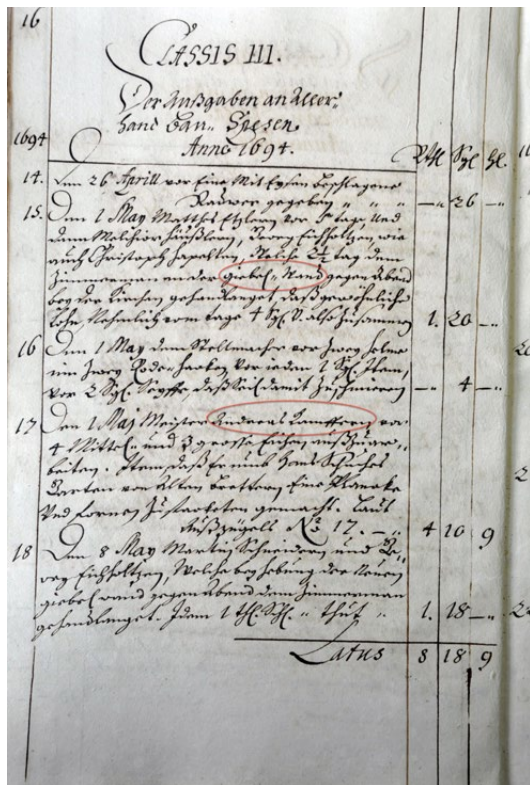 16
CLASSIS III.
Der Außgaben an Aller„
hand Bau„ Spesen
Anno 1694.
1694
Rthl Sgl hl.
14. Den 26 Aprill vor Eine Mit Eysen beschlagene
Radwer gegeben „ „ „ —„ 26 —„
15. Den 1 May Matthes Etzlern vor tag, Und
dann Melchior Häußlern, Georg Eichholtzen, wie
auch Christoph Hepelten, Welche 2½ tag dem
Zimmerman an der giebel„ Wand gegen Abend
bey der Kirchen gehandlanget, daß gewöhnliche
Lohn, Nehmlich vom tage 4 Sgl. also zusammen 1. 20 —„
16 Den 1 May dem Stellmacher vor Zwey
in Zwey Rade vor jeden 1 Sgl. Item,
vor 2 Sgl. Seyffe, daß Seil damit Zuschmieren —„ 4 —„
17 Den 1 Maj Meister Andreas Kampffern vor
4 Mittel„ und 3 große Eichen außzuar„
beiten. Item, daß er umb Hans Schuches
Garten von Alten Brettern Eine Plancke
Und gemacht. Laut
Außzügels No. 17. —„ 4 10 9
18 Den 8 May Martin Schneidern, und Ge„
org Eichholtzen, Welche bey hebung der Neuen
giebel wand gegen Abend dem Zimmerman
gehandlanget. Jdem 1 thl. „ thut „ 1. 18 —„
Latus 8 18 9